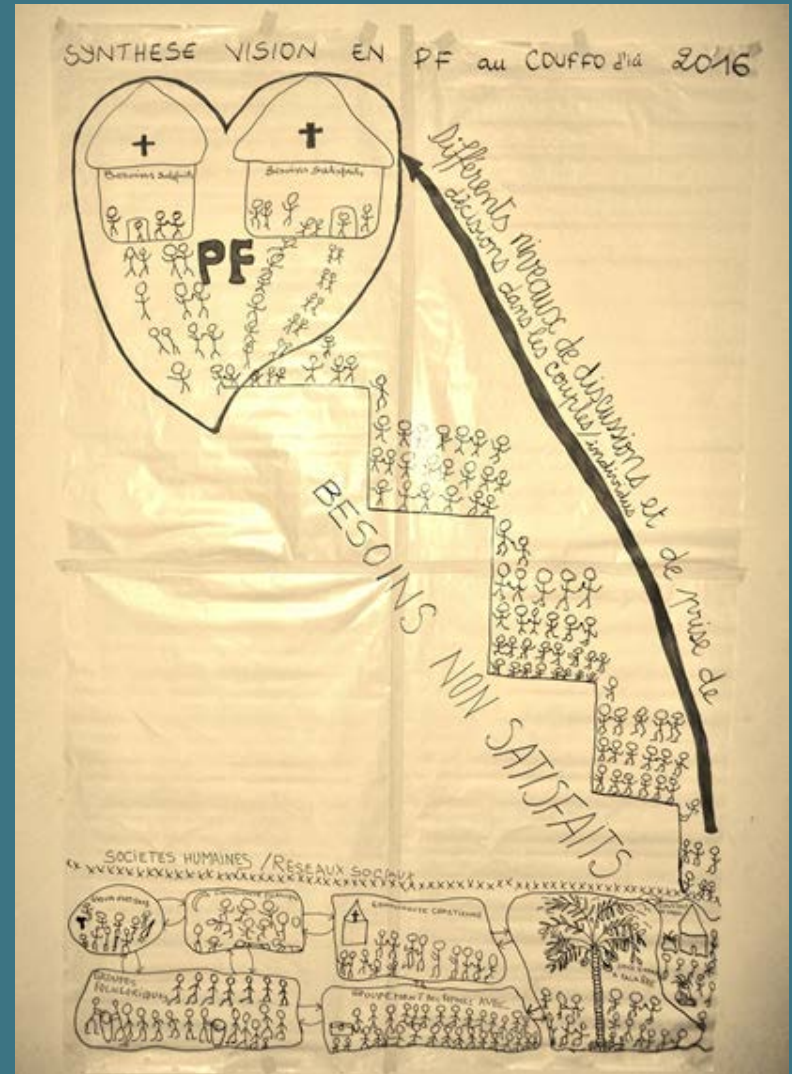 SYNTHESE VISION EN PF au COUFFO d'ici 2016
Besoins Satisfaits
Besoins Satisfaits
PF
Différents niveaux de discussions et de prise de
décisions dans les couples/individus
BESOINS NON SATISFAITS
SOCIETES HUMAINES / RESEAUX SOCIAUX
COMMUNAUTE CHRETIENNE
GROUPES
FOLKLORIQUES
GROUPEMENT DES FEMMES AVEC